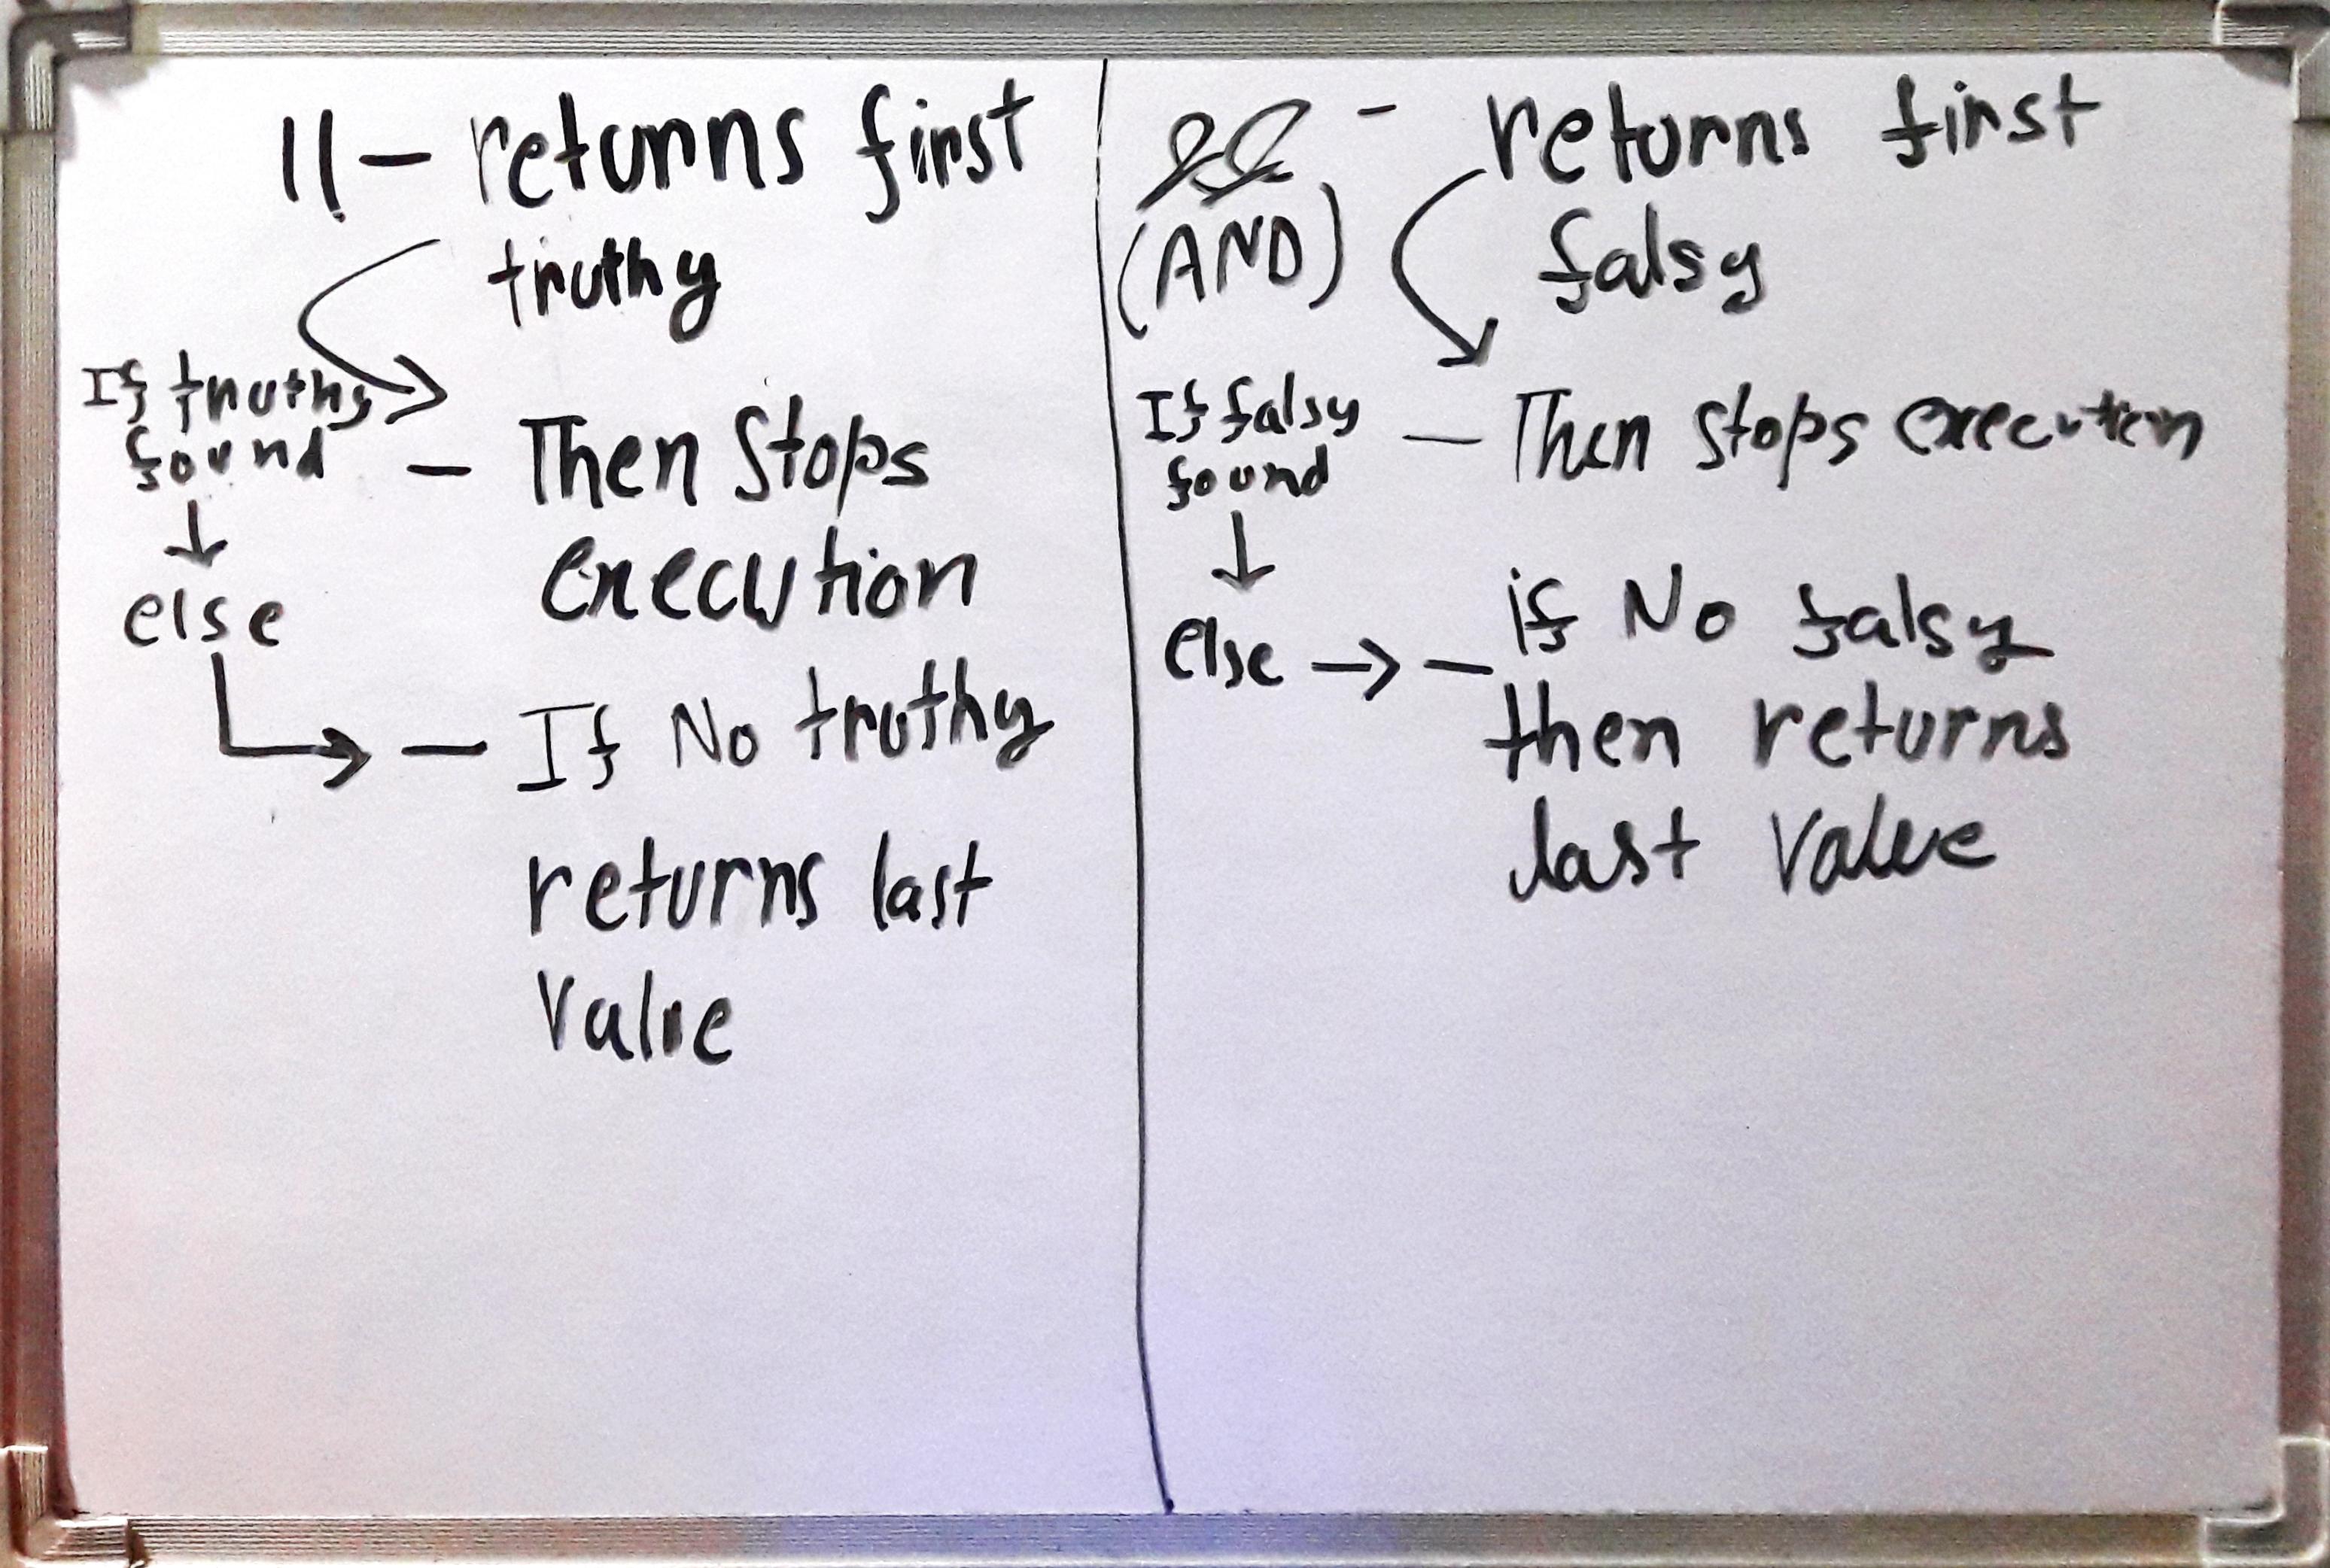 || - returns first
truthy
If truthy
found
- Then Stops
execution
else
- If No truthy
returns last
Value
&& - returns first
(AND)
falsy
If falsy
found
- Then stops execution
else - if No falsy
then returns
last value